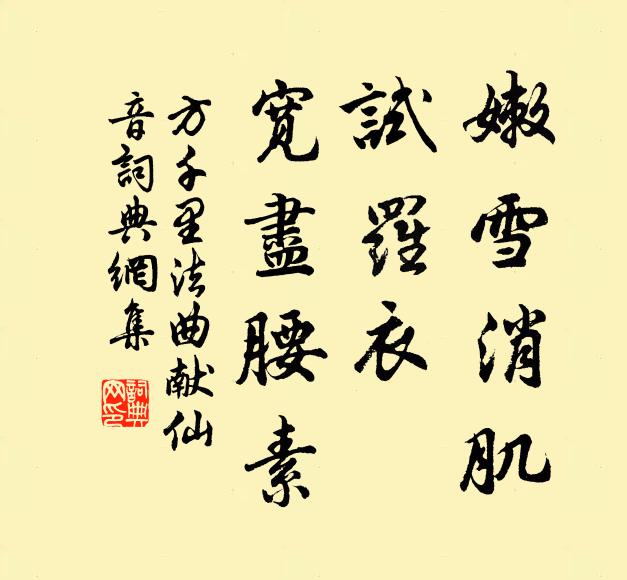 嫩雪消肌
試羅衣
寛盡腰素
方千里法曲献仙
音詞典網集
詞典网印